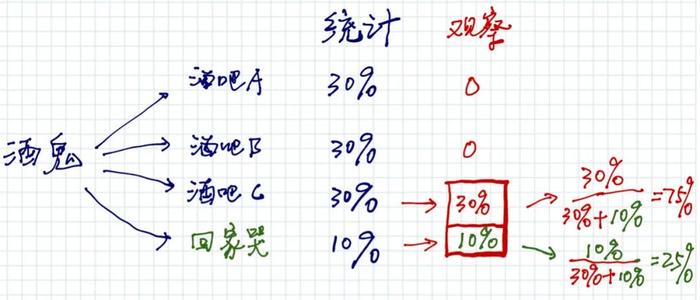 统计 观察
酒吧A 30% 0
酒鬼
酒吧B 30% 0
酒吧C 30% 30% 30%/30%+10%=75%
回家哭 10% 10% 10%/30%+10%=25%